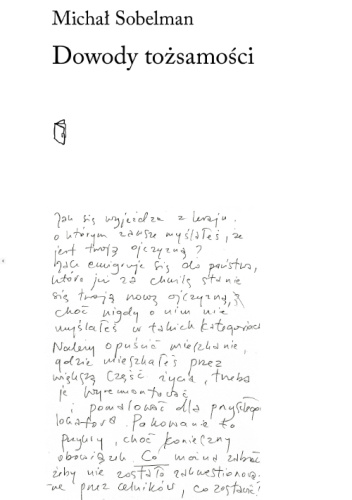 Michał Sobelman
Dowody tożsamości
Jak się wyjeżdża z kraju,
o którym zawsze myślałeś, że
jest twoją ojczyzną?
Jak emigruje się do państwa,
które już za chwilę stanie
się twoją nową ojczyzną,
choć nigdy o nim nie
myślałeś w takich kategoriach
Należy opuścić mieszkanie,
gdzie mieszkałeś przez
większą część życia, trzeba
je wyremontować
i pomalować dla przyszłego
lokatora. Pakowanie to
przykry, choć konieczny
obowiązek. Co można zabrać
żeby nie zostało zakwestionowa-
ne przez celników, co zostawić?